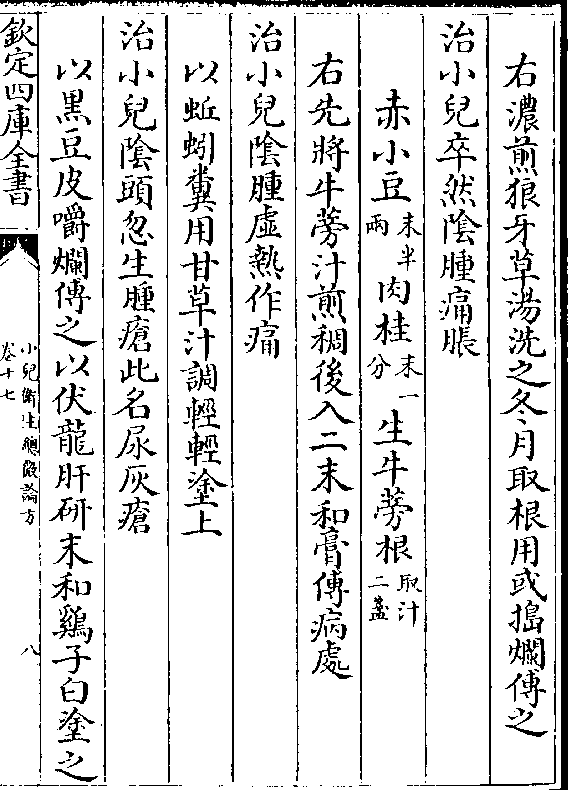 右濃煎狼牙草湯洗之冬月取根用或搗爛傅之
治小兒卒然陰腫痛脹
赤小豆末半兩肉桂末一分生牛蒡根取汁二盞
右先將牛蒡汁煎稠後入二末和膏傅病處
治小兒陰腫虛熱作痛
以蚯蚓糞用甘草汁調輕輕塗上
治小兒陰頭忽生腫瘡此名尿灰瘡
以黑豆皮嚼爛傅之以伏龍肝研末和鷄子白塗之
欽定四庫全書
小兒衛生總微論方
卷十七
八